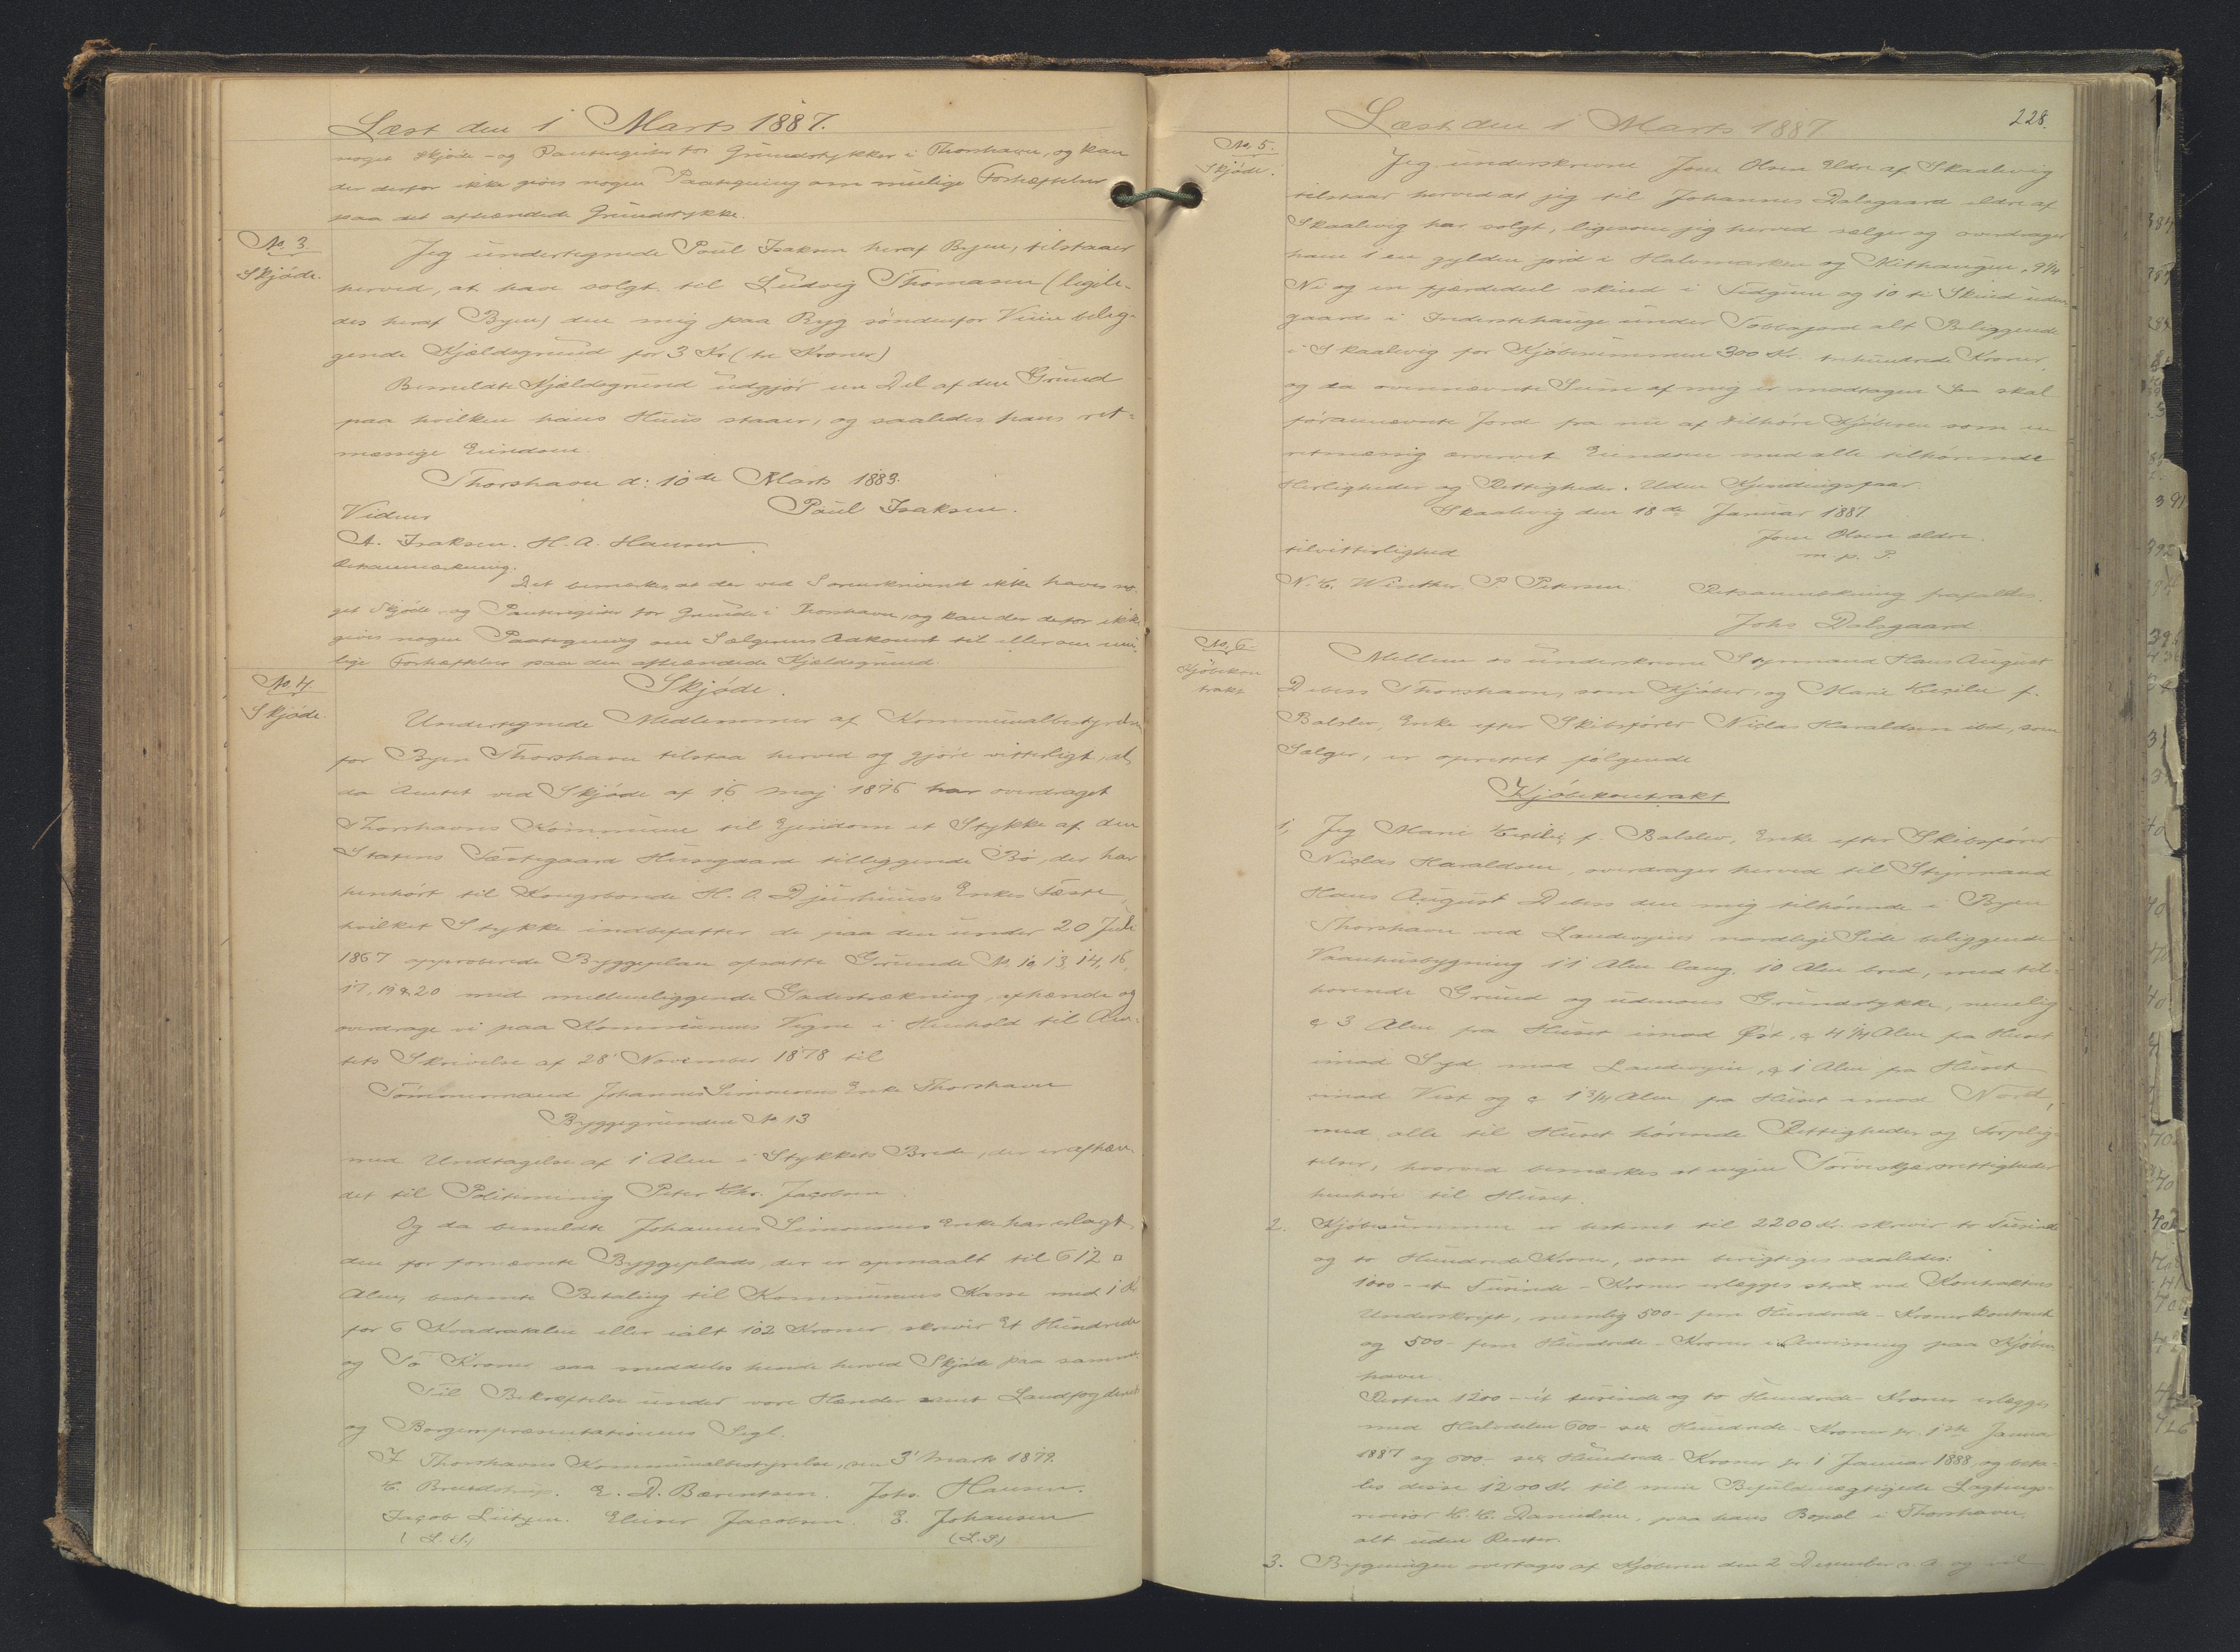 Læst den 1 Marts 1887.
noget Skjøde- og Panteregister for Grundstykker i Thorshavn, og kan
der derfor ikke gives nogen Paategning om mulige Forhæftelser
paa det afhændede Grundstykke.
No. 3
Skjøde.
Jeg undertegnede Poul Isaksen heraf Byen, tilstaaer
herved, at have solgt til Ludvig Thomasen (ligele-
des heraf Byen) den mig paa Ryg søndenfor belig-
gende Kjældegrund for 3 Kr (tre Kroner)
Bemeldte Kjældegrund udgjør en Del af den Grund
paa hvilken hans Huus staaer, og saaledes hans ret-
mæssige Eiendom.
Thorshavn d: 10de Marts 1883.
Poul Isaksen.
Vidner
A. Isaksen. H. A. Hansen.
Retsanmærkning.
Det bemærkes, at der ved Sorenskriveriet ikke haves no-
get Skjøde- og Panteregister for Grunde i Thorshavn, og kan der derfor ikke
gives nogen Paategning om Sælgerens Adkomst til eller om mu-
lige Forhæftelser paa den afhændede Kjældegrund.
No. 4
Skjøde.
Skjøde.
Undertegnede Medlemmer af Kommunalbestyrelsen
for Byen Thorshavn tilstaa herved og gjøre vitterligt, at
da Amtet ved Skjøde af 16 Maj 1876 har overdraget
Thorshavns Kommune til Ejendom et Stykke af den
Statens Fæstegaard Husegaard tilliggende Bø, der har
henhørt til Kongsbonde H. O. Djurhuus's Enkes Fæste,
hvilket Stykke indbefatter de paa den under 20 Juli
1867 approberede Byggeplan afsatte Grunde No. 13, 14, 16,
17, 19 & 20 med mellemliggende Gadestrækning, afhænde og
overdrage vi paa Kommunens Vegne i Henhold til Am-
tets Skrivelse af 28' November 1878 til
Tømmermand Johannes Simonsens Enke Thorshavn
Byggegrunden No 13
med Undtagelse af 1 Alen i Stykkets Brede, der er afhæn-
det til Peter Chr. Jacobsen.
Og da bemeldte Johannes Simonsens Enke har erlagt
den for fornævnte Byggeplads, der er opmaalt til 612 □
Alen, bestemte Betaling til Kommunens Kasse med 1 Kr
for 6 Kvadratalen eller ialt 102 Kroner, skriver Et Hundrede
og To Kroner saa meddeles hende herved Skjøde paa samme.
Til Bekræftelse under vore Hænder samt Landfogderiets
og Borgerrepræsentationens Segl.
I Thorshavns Kommunalbestyrelse, den 3' Marts 1879.
E. D. Bærentsen. Johs. Hansen.
Jacob Lützen. Jacobsen. E. Johansen
(L. S.) (L. S.)
Læst den 1 Marts 1887.
228.
No. 5.
Skjøde.
Jeg underskrevne Joen Olsen ældre af Skaalevig
tilstaar herved at jeg til Johannes Dalsgaard ældre af
Skaalevig har solgt, ligesom jeg herved sælger og overdrager
ham 1 en gylden jord i Halvmarken og 9 1/4
Ni og en fjerdedeel skind i og 10 ti Skind uden-
gaards i under alt Beliggende
i Skaalevig for Kjøbesummen 300 Kr. trehundrede Kroner,
og da ovennævnte Sum af mig er modtagen Saa skal
førannævnte Jord fra nu af tilhøre Kjøberen som en
retmæssig erhvervet Eiendom med alle tilhørende
Herligheder og Rettigheder. Uden
Skaalevig den 18de Januar 1887
Joen Olsen ældre.
m. p. P.
tilvitterlighed
N. C. Winther. P. Petersen.
Retsanmærkning frafaldes.
Johs Dalsgaard
No. 6
Kjøbekon-
trakt
Mellem os underskrevne Styrmand Hans August
Debess Thorshavn, som Kjøber, og Marie Cecilie f.
Balslev, Enke efter Skibsfører Niclas Haraldsen ibd., som
Sælger, er oprettet følgende
Kjøbekontrakt
1, Jeg Marie Cecilie f. Balslev, Enke efter Skibsfører
Niclas Haraldsen, overdrager herved til Styrmand
Hans August Debess den mig tilhørende i Byen
Thorshavn ved Landevejens nordlige Side beliggende
Vaanhusbygning 11 Alen lang, 10 Alen bred, med til-
hørende Grund og udenoms Grundstykke, nemlig
c 3 Alen fra Huset imod Øst, c 4 1/4 Alen fra Huset
imod Syd mod Landevejen, c 1 Alen fra Huset
imod Vest og c 1 3/4 Alen fra Huset imod Nord,
med alle til Huset hørende Rettigheder og Forplig-
telser, hvorved bemærkes at ingen Tørveskjærsrettigheder
henhøre til Huset.
2. Kjøbesummen er bestemt til 2200 Kr. skriver to Tusinde
og to Hundrede Kroner, som berigtiges saaledes:
1000 - et Tusinde - Kroner erlægges strax ved Kontraktens
Underskrift, nemlig 500 - fem Hundrede - Kroner kontant
og 500 - fem Hundrede - Kroner i Anvisning paa Kjøben-
havn.
Resten 1200 - ét tusinde og to Hundrede - Kroner erlægges
med Halvdelen 600 - sex Hundrede - Kroner pr. 1ste Januar
1887 og 600 - sex Hundrede - Kroner pr. 1 Januar 1888, og beta-
les disse 1200 Kr. til min Befuldmægtigede Lagtings-
revisor C. C. Danielsen, paa hans Bopæl i Thorshavn,
alt uden Renter.
3. Bygningen overtages af Kjøberen den 2 December d. A. og vil